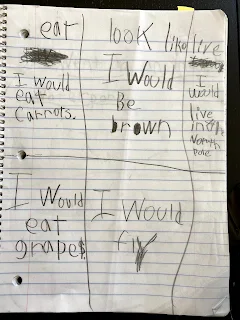 eat
I Would
eat
Carrots.
look like
I Would
Be
brown
live
I
would
live
in the
North
Pole
I Would
eat
grapes
I Would
fly